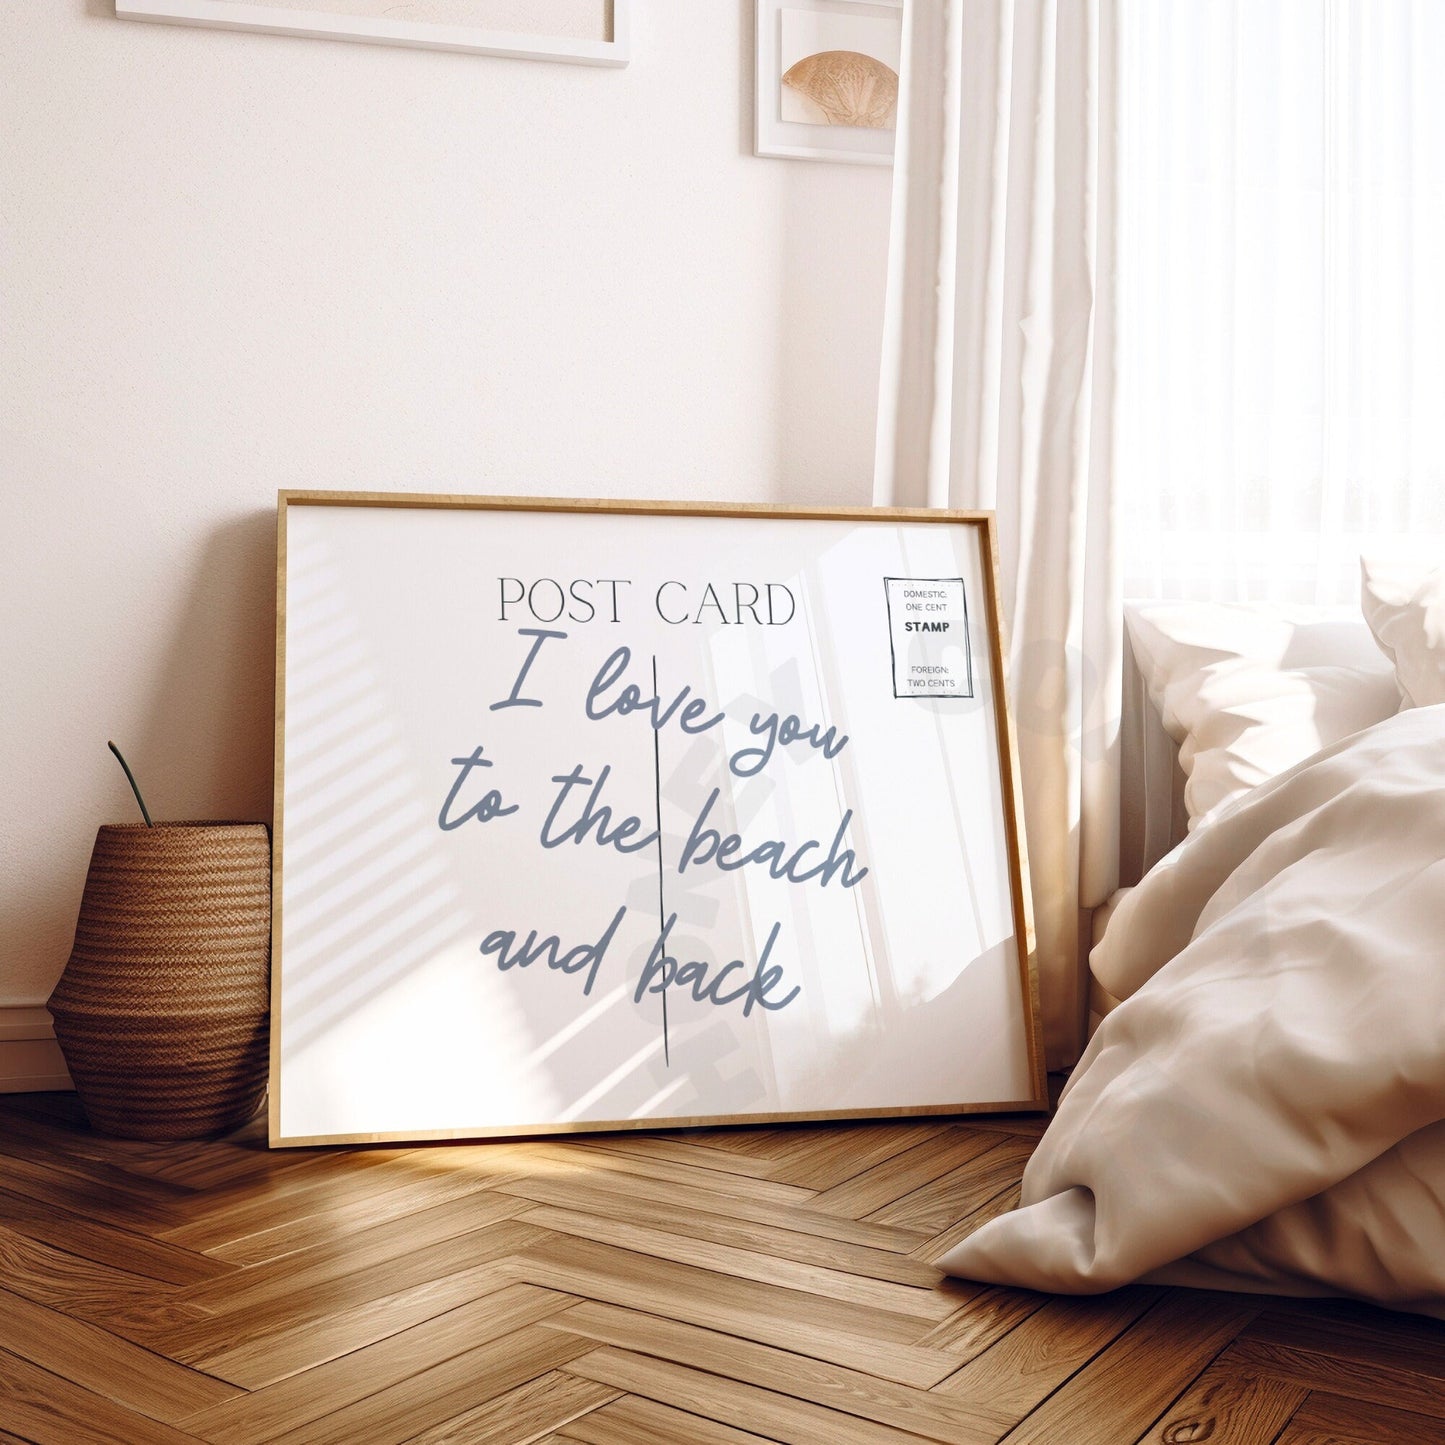 POST CARD
DOMESTIC:
ONE CENT
STAMP
FOREIGN:
TWO CENTS
I love you
to the beach
and back